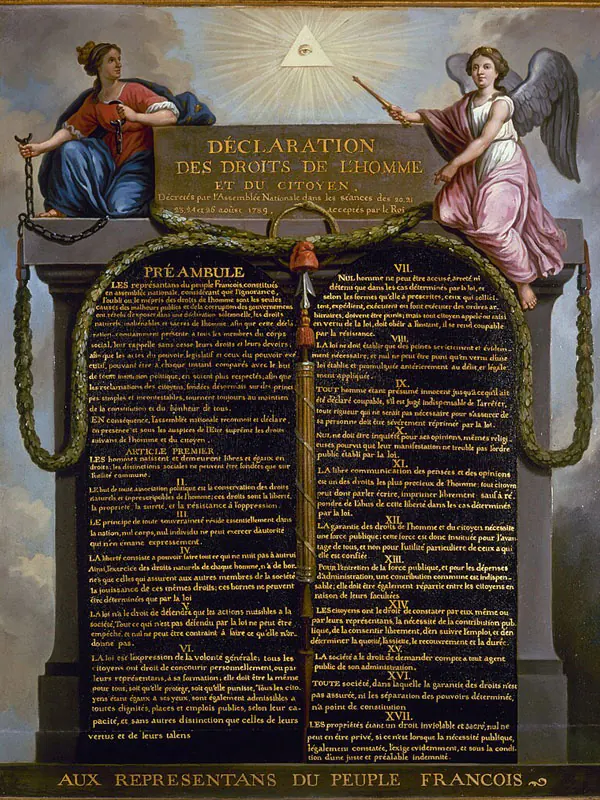 DÉCLARATION
DES DROITS DE L'HOMME
ET DU CITOYEN,
Décretés par l'Assemblée Nationale dans les séances des 20, 21
23, 24 et 26 août 1789, acceptés par le Roi
PRÉAMBULE
LES représentans du peuple François, constitués
en assemblée nationale, considérant que l'ignorance,
l'oubli ou le mépris des droits de l'homme sont les seules
causes des malheurs publics et de la corruption des gouvernemens
ont résolu d'exposer dans une déclaration solemnelle, les droits
naturels, inaliénables et sacrés de l'homme: afin que cette décla
ration, constamment présente à tous les membres du corps
social, leur rappelle sans cesse leurs droits et leurs devoirs;
afin que les actes du pouvoir législatif et ceux du pouvoir exé
cutif, pouvant être à chaque instant comparés avec le but
de toute institution politique, en soient plus respectés; afin que
les réclamations des citoyens, fondées désormais sur des princi
pes simples et incontestables, tournent toujours au maintien
de la constitution et du bonheur de tous.
EN conséquence, l'assemblée nationale reconnoit et déclare,
en présence et sous les auspices de l'Être suprême les droits
suivans de l'homme et du citoyen.
ARTICLE PREMIER
LES hommes naissent et demeurent libres et égaux en
droits; les distinctions sociales ne peuvent être fondées que sur
l'utilité commune.
II.
LE but de toute association politique est la conservation des droits
naturels et imprescriptibles de l'homme; ces droits sont la liberté,
la propriété, la sureté, et la résistance à l'oppression.
III.
LE principe de toute souveraineté réside essentiellement dans
la nation, nul corps, nul individu ne peut exercer d'autorité
qui n'en émane expressement.
IV.
LA liberté consiste à pouvoir faire tout ce qui ne nuit pas à autrui
Ainsi, l'exercice des droits naturels de chaque homme, n'a de bor-
nes que celles qui assurent aux autres membres de la société
la jouissance de ces mêmes droits; ces bornes ne peuvent
être déterminées que par la loi
V.
LA loi n'a le droit de défendre que les actions nuisibles à la
société, Tout ce qui n'est pas défendu par la loi ne peut être
empêché, et nul ne peut être contraint à faire ce qu'elle n'or-
donne pas.
VI.
LA loi est l'expression de la volonté générale; tous les
citoyens ont droit de concourir personnellement, ou par
leurs représentans, à sa formation; elle doit être la même
pour tous, soit qu'elle protege, soit qu'elle punisse, Tous les cito-
yens étant égaux à ses yeux, sont également admissibles à
toutes dignités, places et emplois publics, selon leur ca-
pacité, et sans autres distinction que celles de leurs
vertus et de leurs talens
VII.
NUL homme ne peut être accusé, arreté ni
détenu que dans les cas déterminés par la loi, et
selon les formes qu'elle a prescrites, ceux qui sollici-
tent, expédient, exécutent ou font exécuter des ordres ar-
bitraires, doivent être punis; mais tout citoyen appelé ou saisi
en vertu de la loi, doit obéir à l'instant, il se rend coupable
par la résistance.
VIII.
LA loi ne doit établir que des peines strictement et évidem-
ment nécessaire, et nul ne peut être puni qu'en vertu d'une
loi établie et promulguée antérieurement au délit, et légale-
ment appliquée.
IX.
TOUT homme étant présumé innocent jusqu'à ce qu'il ait
été déclaré coupable, s'il est jugé indispensable de l'arrêter,
toute rigueur qui ne serait pas nécessaire pour s'assurer de
sa personne doit être sévérement réprimée par la loi.
X.
NUL ne doit être inquiété pour ses opinions, mêmes religi-
euses pourvu que leur manifestation ne trouble pas l'ordre
public établi par la loi.
XI.
LA libre communication des pensées et des opinions
est un des droits les plus précieux de l'homme; tout citoyen
peut donc parler écrire, imprimer librement: sauf à ré-
pondre de l'abus de cette liberté dans les cas déterminés
par la loi.
XII.
LA garantie des droits de l'homme et du citoyen nécessite
une force publique; cette force est donc instituée pour l'avan-
tage de tous, et non pour l'utilité particulière de ceux à qui
elle est confiée.
XIII.
Pour l'entretien de la force publique, et pour les dépenses
d'administration, une contribution commune est indispen-
sable; elle doit être également répartie entre les citoyens en
raison de leurs facultées
XIV.
LES citoyens ont le droit de constater par eux même ou
par leurs représentans, la nécessité de la contribution pub-
lique, de la consentir librement, d'en suivre l'emploi, et d'en
déterminer la quotité, l'assiette, le recouvrement et la durée.
XV.
LA société a le droit de demander compte à tout agent
public de son administration.
XVI.
TOUTE société, dans laquelle la garantie des droits n'est
pas assurée, ni les séparation des pouvoirs déterminée,
n'a point de constitution
XVII.
LES propriétés étant un droit inviolable et sacré, nul ne
peut en être privé, si ce n'est lorsque la nécessité publique,
légalement constatée, l'exige evidemment, et sous la condi-
tion d'une juste et préalable indemnité.
AUX REPRESENTANS DU PEUPLE FRANCOIS